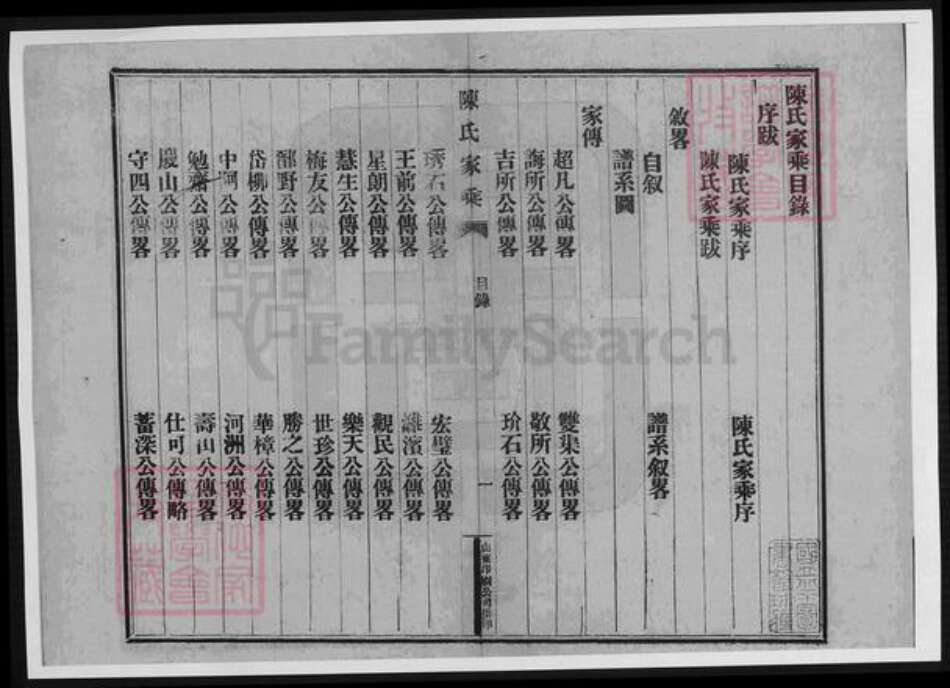 陳氏家乘目錄
序跋
陳氏家乘序
陳氏家乘序
陳氏家乘跋
敘畧
自叙
譜系叙畧
譜系圖
家傳
超凡公傳畧
雙渠公傳畧
誨所公傳畧
敬所公傳畧
吉所公傳畧
玠石公傳畧
陳氏家乘
目錄
一
石公傳畧
宏璧公傳畧
王前公傳畧
濰濱公傳畧
星朗公傳畧
觀民公傳畧
慧生公傳畧
樂天公傳畧
梅友公傳畧
世珍公傳畧
野公傳畧
勝之公傳畧
岱柳公傳畧
華樟公傳畧
中公傳畧
河洲公傳畧
勉齋公傳畧
壽山公傳畧
巖山公傳畧
仕可公傳略
守四公傳畧
蓄深公傳畧
FamilySearch